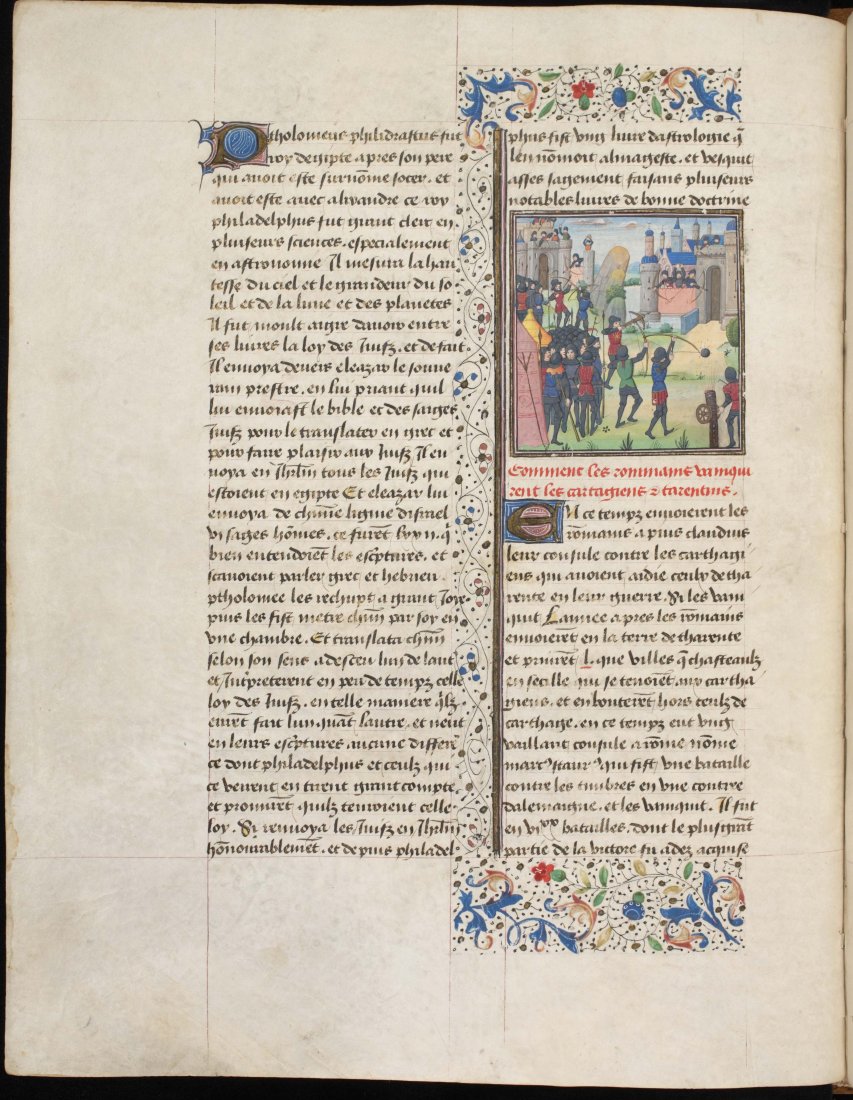 Ptholomeus philidrastus fut
roy degipte apres son pere
qui auoit este surnõme soter . et
auoit este auec alixandre ce roy
philadelphus fut grant clerc en
pluiseurs sciences . especialement
en astronomie Il mesura la hau
tesse du ciel et le grandeur du so
leil et de la lune et des planetes
Il fut moult aigre dauoir entre
ses liures la loy des Juifz . et de fait
Il enuoya deuers eleazar le souue
rain prestre . en lui priant quil
lui enuoiast le bible et des sarges
Juifz pour le translater en grec et
pour faire plaisir aux Juifz Il en
uoya en Jhrl̃m tous les Juifz qui
estoient en egipte Et eleazar lui
enuoya de chũne ligne disrael
vi sages hõmes . ce furẽt lxxii . q̃
bien entendoiẽt les escp̃tures . et
scauoient parler grec et hebrieu .
ptholomee les rechupt a grant Joye
puis les fist metre chũn par soy en
vne chambre . Et translata chũn
selon son sens a desceu lun de laut
et Interpreterent en peu de tempz celle
loy des Juifz . en telle maniere q̃lz
eurẽt fait lun quãt lautre . et neut
en leurs escp̃tures aucune differẽ
ce dont philadelphus et ceulx qui
ce veirent en tirent grant compte
et promirẽt quilz tenroient celle
loy . Si renuoya les Juifz en Jhrl̃m
hõnourablemẽt . et depuis philadel
phus fist vng liure dastrologie q̃
len nõmoit almageste . et vesquit
asses sagement faisans pluiseurs
notables liures de bonne doctrine
Comment les rommains vainqui
rent les cartagiens & tarentins .
En ce tempz enuoierent les
rõmains apius claudius
leur consule contre les carthagi
ens qui auoient aidie ceulx de tha
rente en leur guerre . Si les vain
quit Lannee apres les rõmains
enuoierẽt en la terre de tharente
et prinrẽt .L. que villes q̃ chasteaulx
en secille qui se tenoiẽt aux cartha
giens . et en bouterẽt hors ceulx de
carthage . en ce tempz eut vng
vaillant consule a rõme nõme
 qui fist vne bataille
contre les timbres en vne contree
dalemaigne . et les vainquit . Il fut
en vixx batailles . dont le plus grãt
partie de la victore fu adez acquise